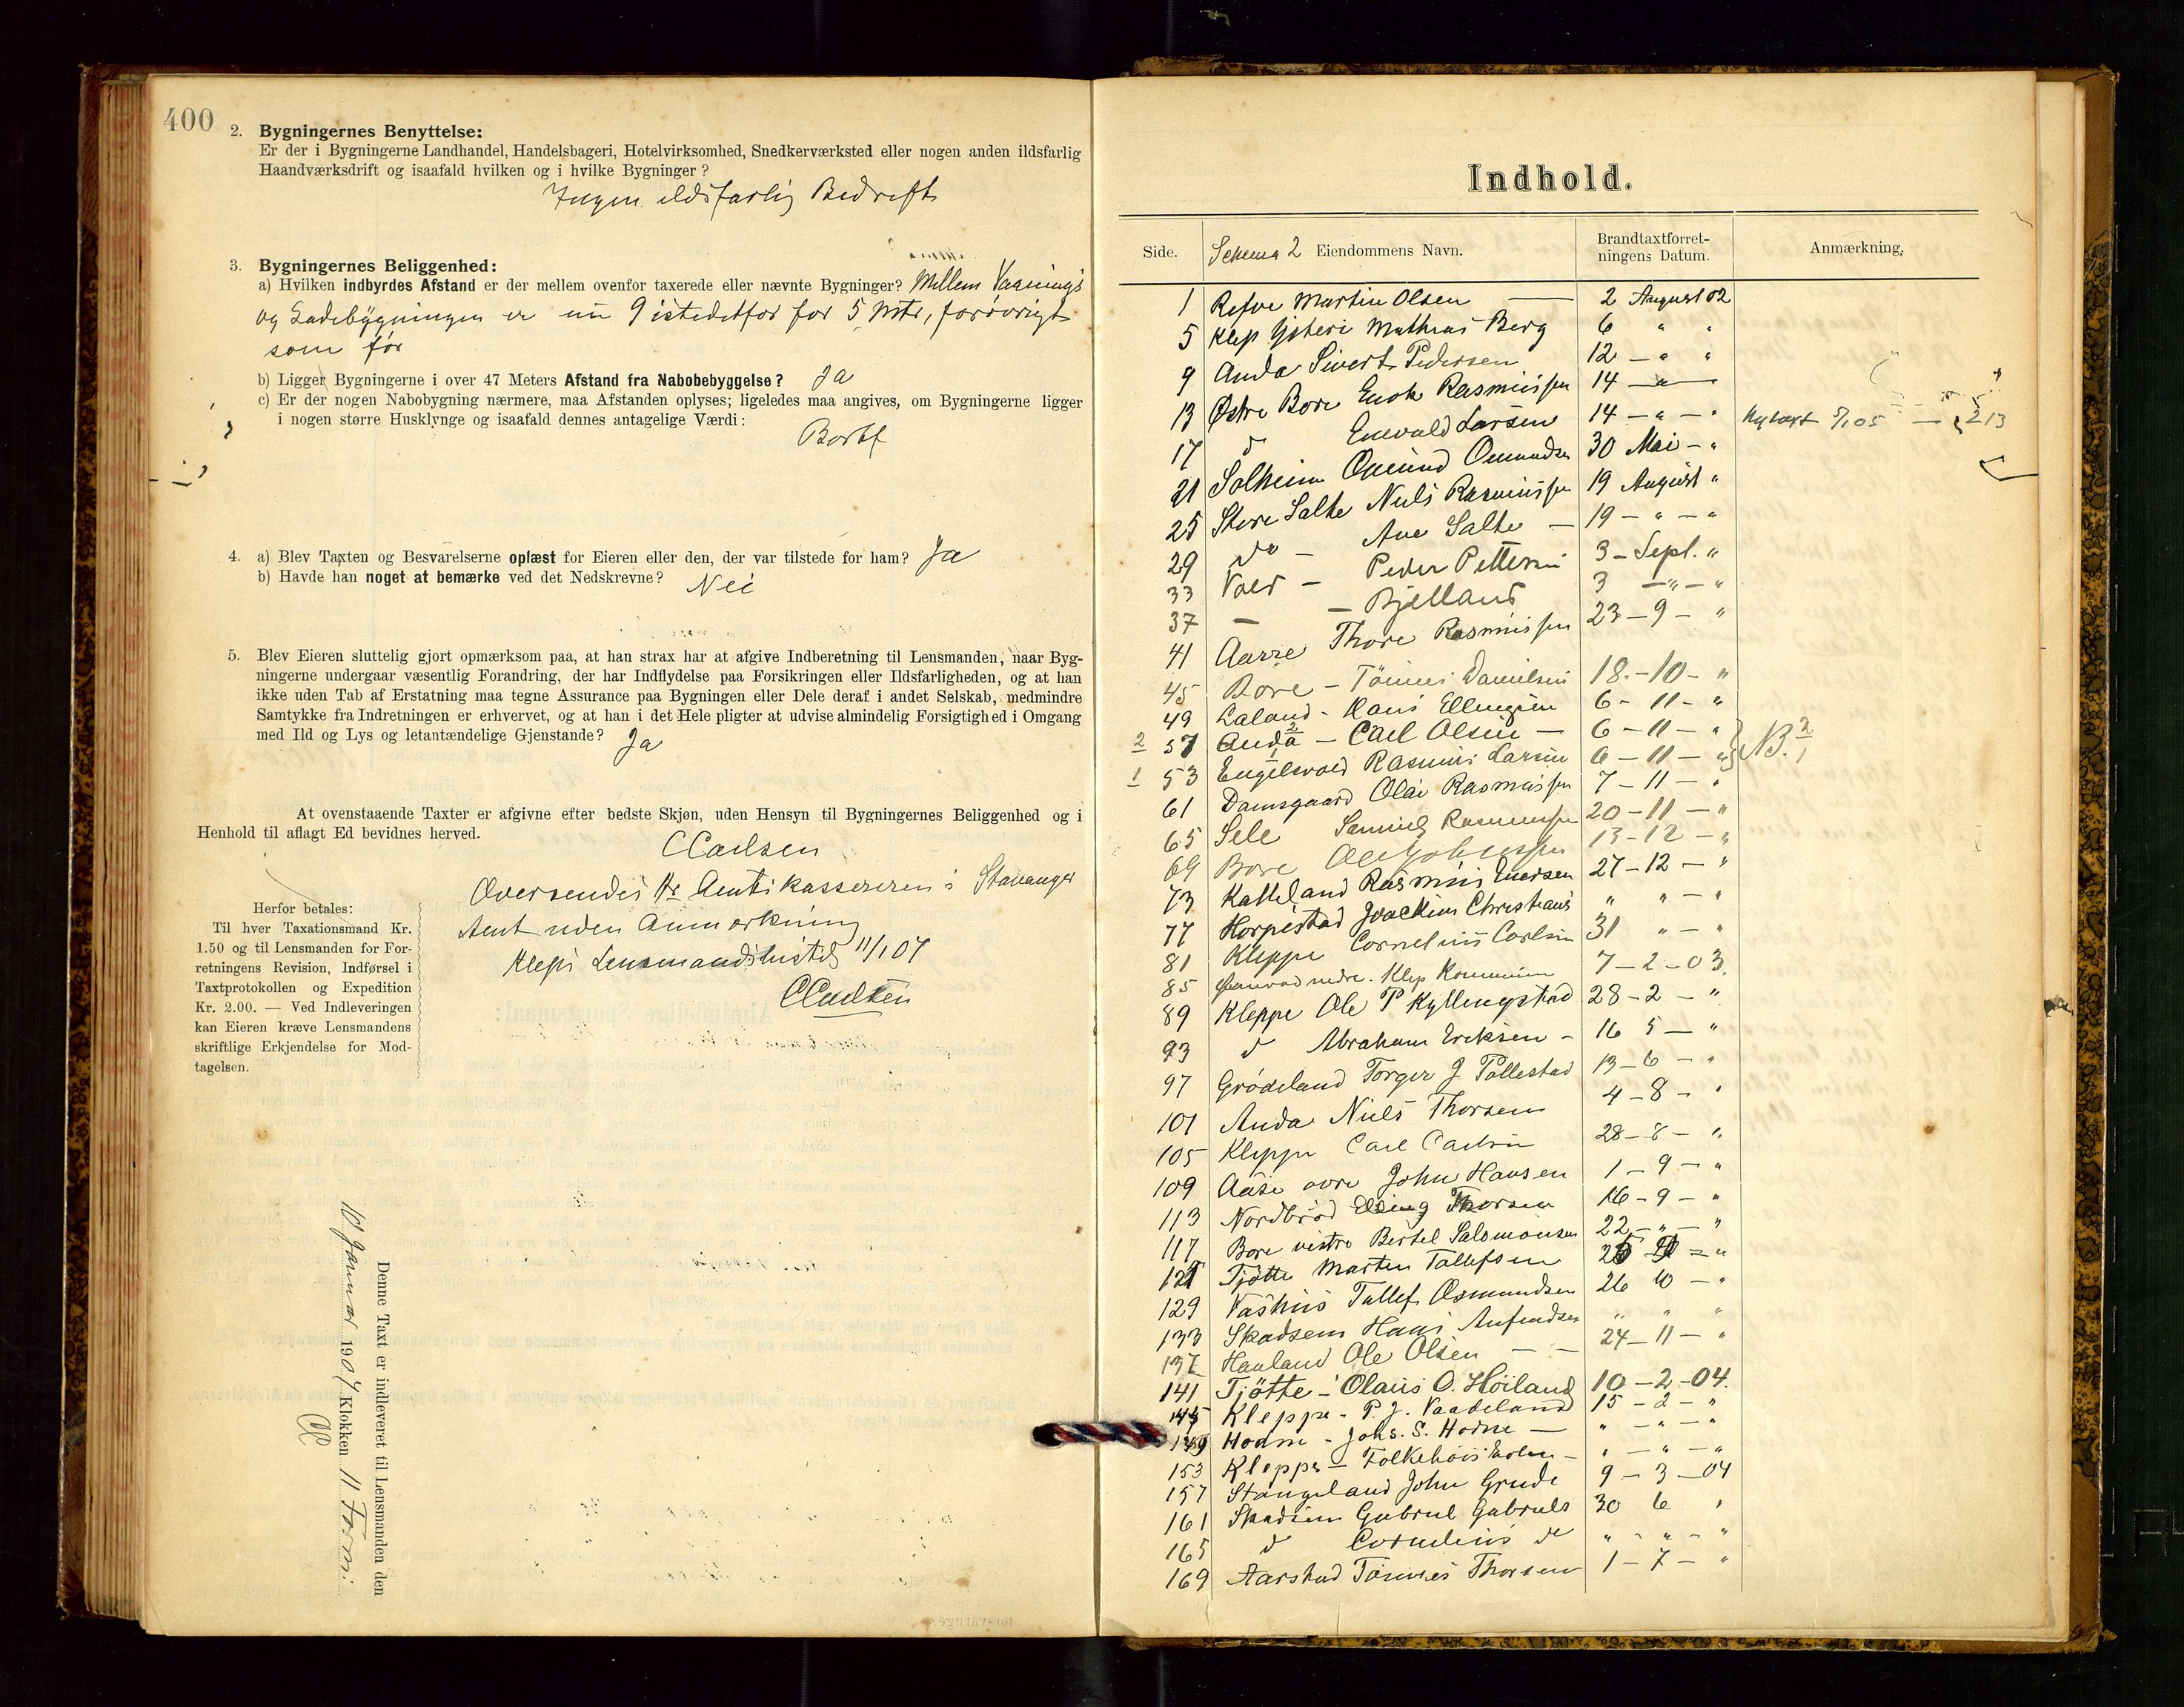 400
2. Bygningernes Benyttelse:
Er der i Bygningerne Landhandel, Handelsbageri, Hotelvirksomhed, Snedkerværksted eller nogen anden ildsfarlig
Haandværksdrift og isaafald hvilken og i hvilke Bygninger?
Ingen ildsfarlig Bedrift
3. Bygningernes Beliggenhed:
a) Hvilken indbyrdes Afstand er der mellem ovenfor taxerede eller nævnte Bygninger? Mellem Vaanings
og Ladebygningen er nu 9 istedetfor for 5 Mtr, forøvrigt
som før
b) Ligger Bygningerne i over 47 Meters Afstand fra Nabobebyggelse? Ja
c) Er der nogen Nabobygning nærmere, maa Afstanden oplyses; ligeledes maa angives, om Bygningerne ligger
i nogen større Husklynge og isaafald dennes antagelige Værdi:
Bortf
4. a) Blev Taxten og Besvarelserne oplæst for Eieren eller den, der var tilstede for ham? Ja
b) Havde han noget at bemærke ved det Nedskrevne? Nei
5. Blev Eieren sluttelig gjort opmærksom paa, at han strax har at afgive Indberetning til Lensmanden, naar Byg-
ningerne undergaar væsentlig Forandring, der har Indflydelse paa Forsikringen eller Ildsfarligheden, og at han
ikke uden Tab af Erstatning maa tegne Assurance paa Bygningen eller Dele deraf i andet Selskab, medmindre
Samtykke fra Indretningen er erhvervet, og at han i det Hele pligter at udvise almindelig Forsigtighed i Omgang
med Ild og Lys og letantændelige Gjenstande? Ja
At ovenstaaende Taxter er afgivne efter bedste Skjøn, uden Hensyn til Bygningernes Beliggenhed og i
Henhold til aflagt Ed bevidnes herved.
CCarlsen
Oversendes Hr Amtskassereren i Stavanger
Amt uden Anmærkning
Kleps Lensmandsbestil 11/1 07
CCarlsen
Herfor betales:
Til hver Taxationsmand Kr.
1.50 og til Lensmanden for For-
retningens Revision, Indførsel i
Taxtprotokollen og Expedition
Kr. 2.00. — Ved Indleveringen
kan Eieren kræve Lensmandens
skriftlige Erkjendelse for Mod-
tagelsen.
Denne Taxt er indleveret til Lensmanden den
10 Januar 1907 Klokken 11 Form.
CC
Indhold.
Side. Schema 2 Eiendommens Navn. Brandtaxtforret-ningens Datum. Anmærkning.
1 Refve Martin Olsen — 2 August 02
5 Klep Ysteri Mathias Berg 6 " "
9 Anda Sivert Pedersen 12 — " "
13 Østre Bore Enok Rasmussen 14 — " —
17 d Enevald Larsen 14 — " — " Nytaxt 5/1 05 — 213
21 Solheim Omund Omundsen 30 Mai — "
25 Store Salte Nils Rasmussen 19 August "
29 do — Ane Salte — 19 — " — "
33 Vold — Peder Pettersen 3 — Sept. "
37 — — Bjelland 3 — " — "
41 Aarre Thore Rasmussen 23 — 9 — "
45 Bore — Tønnes Danielsen 18. — 10 — "
49 Laland - Hans Ellingsen 6 — 11 — "
2 57 Anda 2 — Carl Olsen — 6 — 11 — " NB. 2/1
1 53 Engelsvold Rasmus Larsen 6 — 11 — "
61 Damsgaard Olai Rasmussen 7 — 11 — "
65 Sele Samuel Rasmussen 20 — 11 — "
69 Bore Ole Johnssen 13 — 12 — "
73 Katteland Rasmus Enersen 27 — 12 — "
77 Horpestad Joackim Christians " " — "
81 Kleppe Cornelius Carlsen 31 " — "
85 nedre. Klep Kommune 7 — 2 — 03.
89 Kleppe Ole P Kyllingstad 28 — 2 — "
93 d Abraham Eriksen — 16 5 — "
97 Grødeland Torger J Pollestad 13 — 6 — "
101 Anda Niels Thorsen 4 — 8 — "
105 Kleppe Carl Carlsen 28 — 8 — "
109 Aase øvre John Hansen 1 — 9 — "
113 Nordbrød Elling Thorsen 16 — 9 — "
117 Bore vestre Bertel Salomonsen 22 — " — "
121 Tjøtte Marten Tollefsen 25 — 9 — "
129 Vashus Tollef Osmundsen 26 10 — "
133 Skadsem Hans Anfindsen " " "
137 Hauland Ole Olsen — — 24 — 11 — "
141 Tjøtte — Olaus O. Høiland 10 — 2 — 04.
145 Kleppe - P. J. Vaadeland 15 — 2 — "
149 Hodne - Johs. S. Hodne — " — " — "
153 Kleppe — Folkehøiskolen — " — " — "
157 Stangeland John Grude 9 — 3 — 04
161 Skadsem Gabriel Gabriels 30 6 "
165 d Cornelius d " — " — "
169 Aarstad Tønnes Thorsen 1 — 7 — "